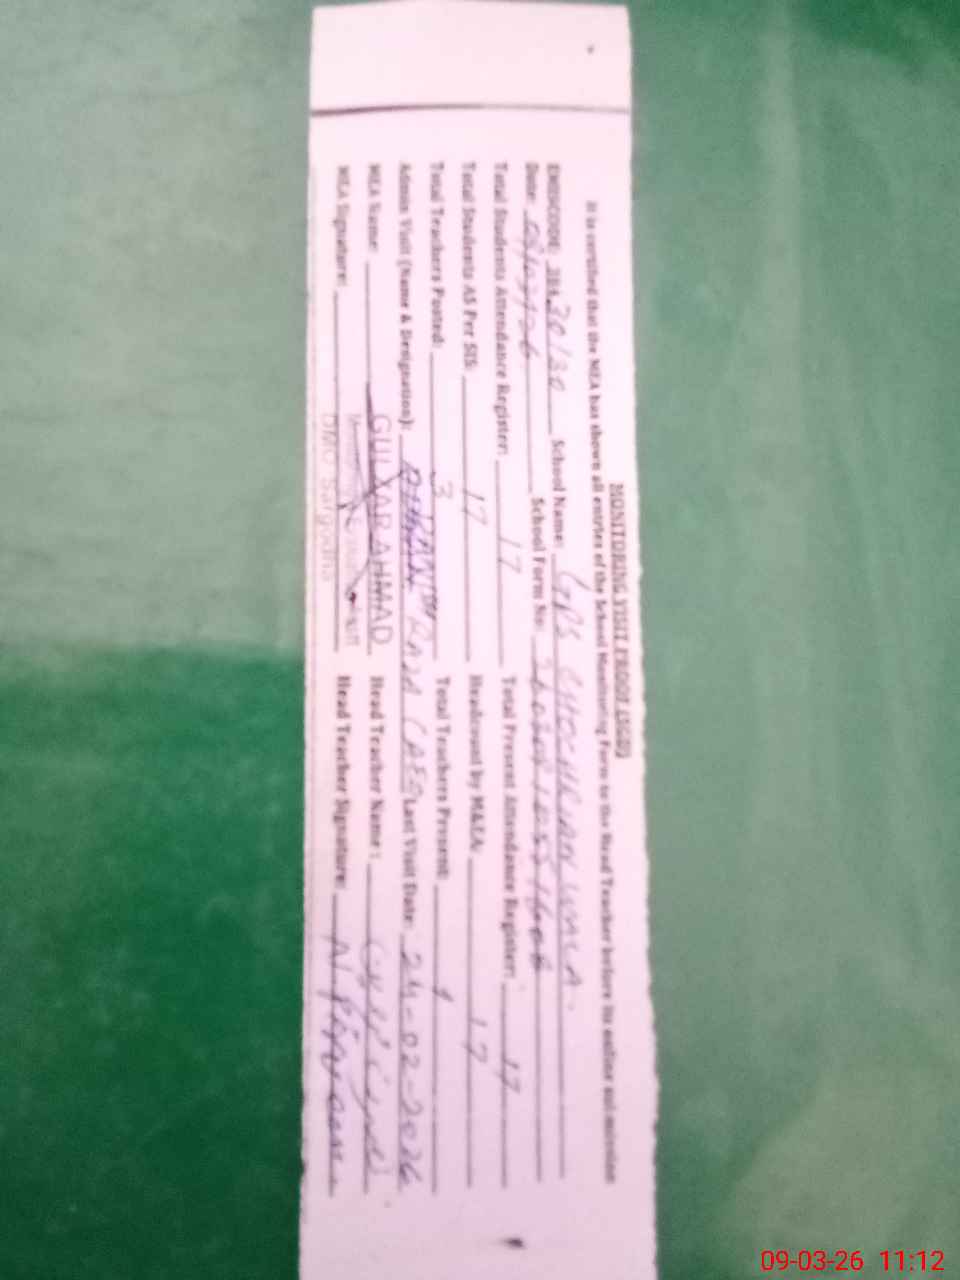 MONITORING VISIT PROOF (SGD)
It is certified that the MEA has shown all entries of the School Monitoring Form to the Head Teacher before its online submission
EMISCODE: 384 30130 School Name: GPS CHOCHRIAN WALA.
Date: 09/03/26 School Form No:
Total Students Attendance Register: 17 Total Present Attendance Register: 17
Total Students AS Per SIS: 17 Headcount by M&EA: 17
Total Teachers Posted: 3 Total Teachers Present: 1
Admin Visit (Name & Designation): RAZA (AEO Last Visit Date: 24-02-2026
MEA Name: GULZAR AHMAD Head Teacher Name:
MEA Signature: Head Teacher Signature:
DMO Sargodha
09-03-26 11:12